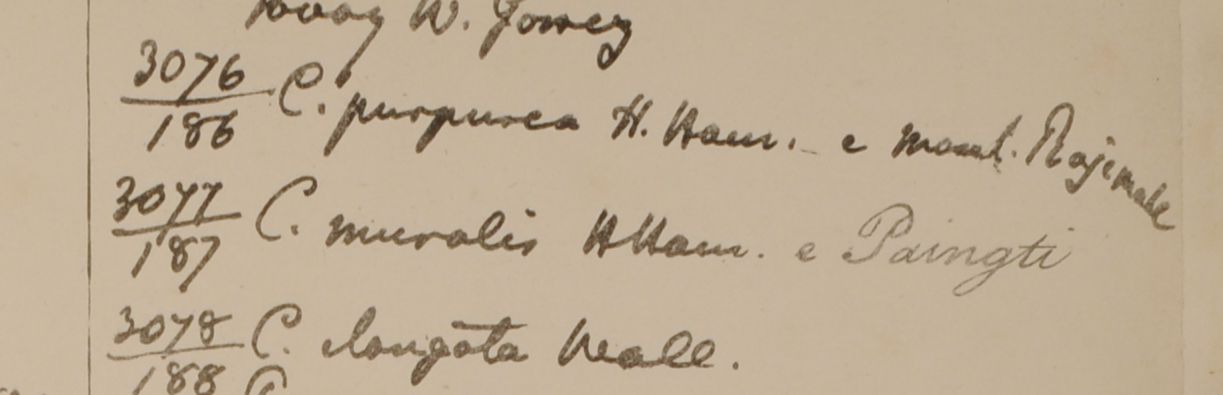 Tavoy W. Gomez
3076/186 C. purpurea H. Ham. e mont. Rajemahl
3077/187 C. muralis HHam. e Paingti
3078/188 C. elongata Wall.
C.